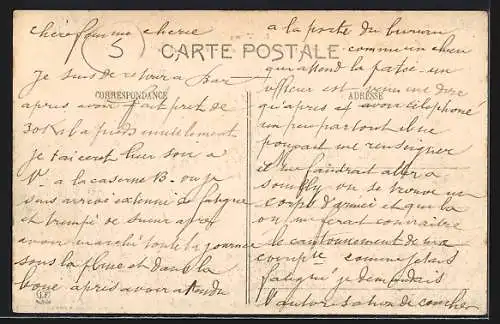 chère femme cherie
S
CARTE POSTALE
CORRESPONDANCE
ADRESSE
je suis de retour a Bar
apres avoir fait pret de
30 K la a pieds inutilement
je t'ai ecrit hier soir a
V. a la caserne B. ou je
suis arrivé extenué de fatigue
et trempé de sueur apres
avoir marché toute la journee
sous la pluie et dans la
boue apres avoir attendu
a la porte du bureau
comme un chien
qui attend la patée un
officier est venu me dire
qu'apres avoir téléphoné
un peu partout il ne
pouvait me renseigner
il me faudrait aller a
Souilly ou se trouve un
corps d'armée et qui la
on me ferait connaitre
le cantonnement de ma
compte comme j'etais
fatigué je demandais
l'autorisation de coucher